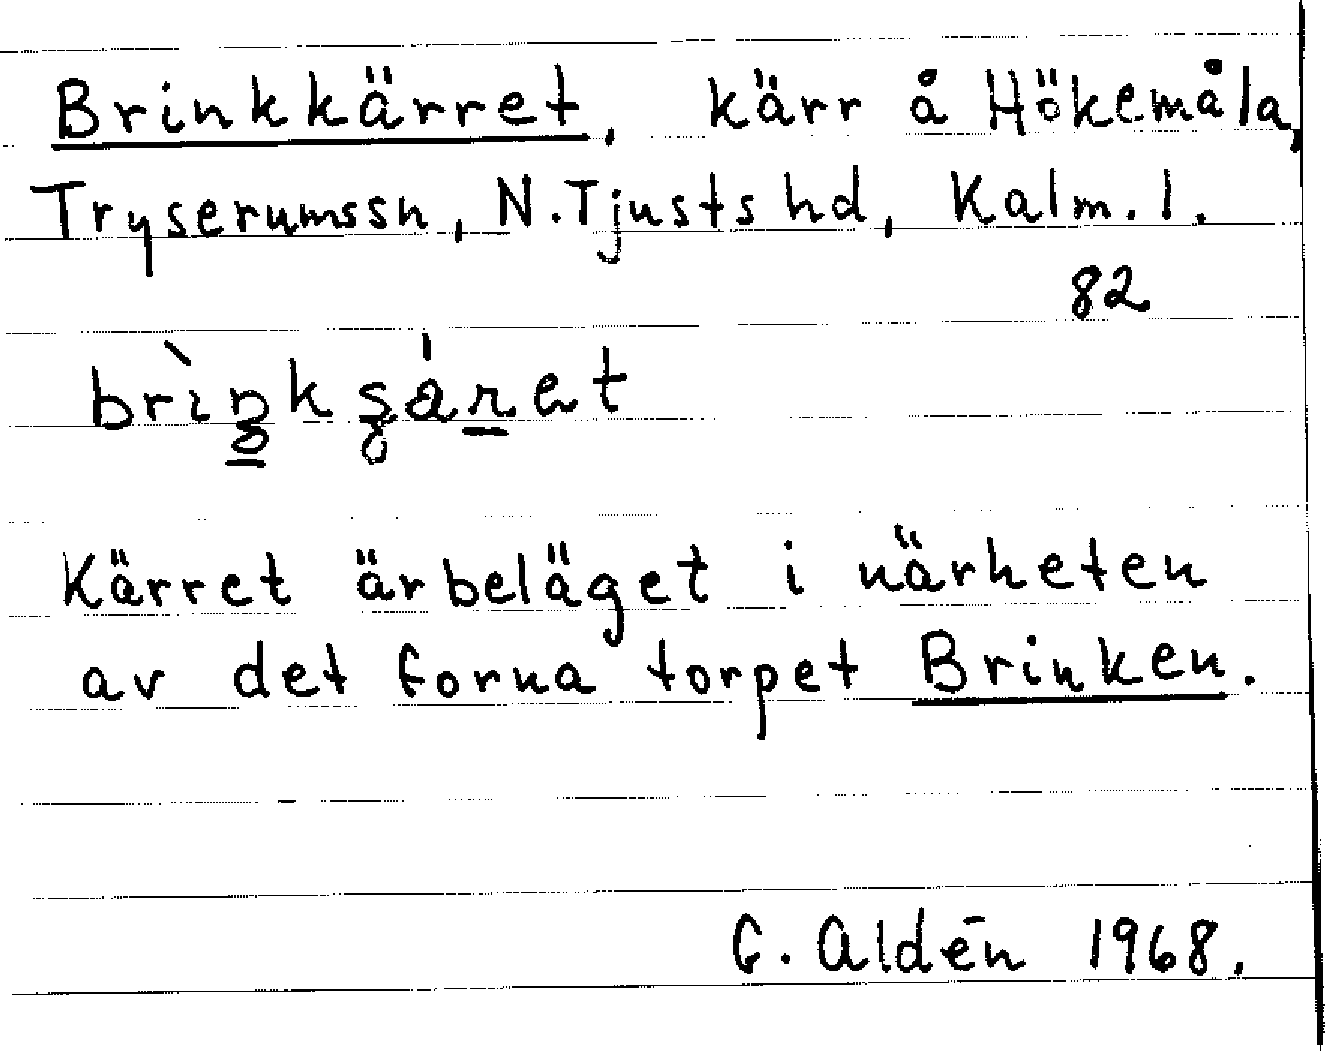 Brinkkärret, kärr å Hökemåla,
Tryserumssn, N. Tjusts hd, Kalm. l.
82
Kärret är beläget i närheten
av det forna torpet Brinken.
G. Aldén 1968.